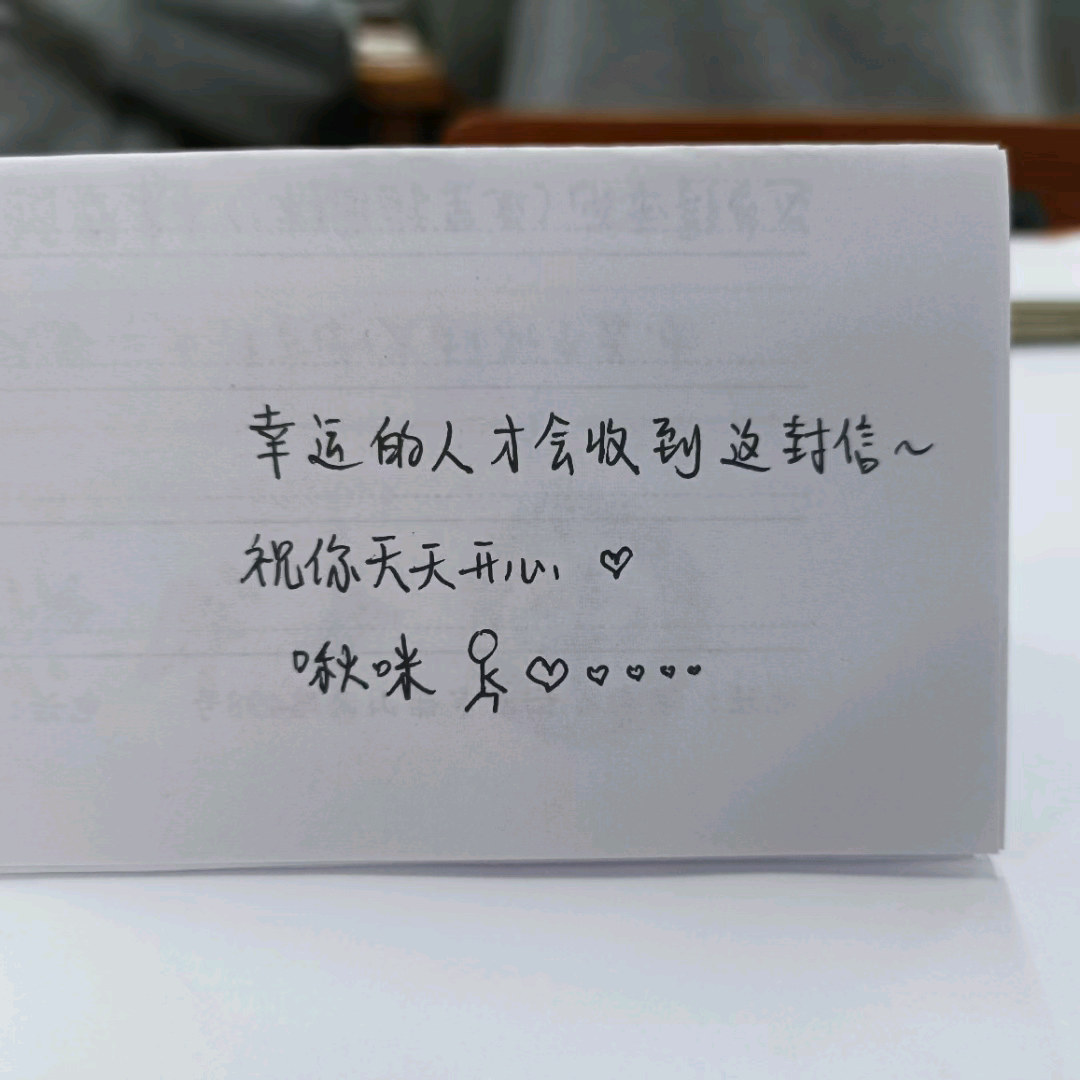 幸运的人才会收到这封信~
祝你天天开心 ♡
啾咪 ♡♡♡♡♡